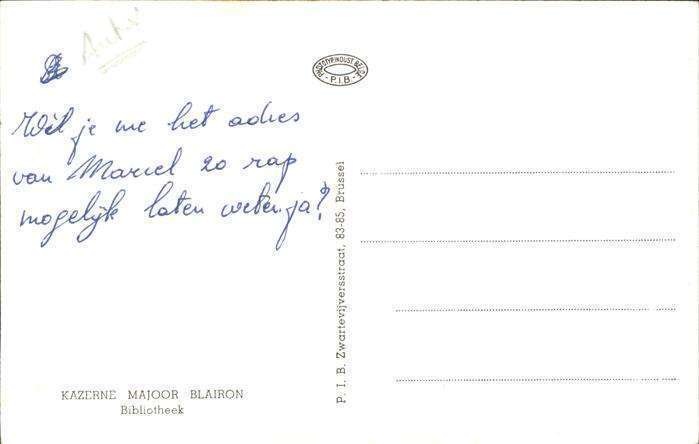 PHOTOTYPINDUST. BELGE
- P.I.B. -
Wil je me het adres
van Marcel zo rap
mogelijk laten weten ja?
P. I. B. Zwartevijversstraat, 83-85, Brussel
KAZERNE MAJOOR BLAIRON
Bibliotheek